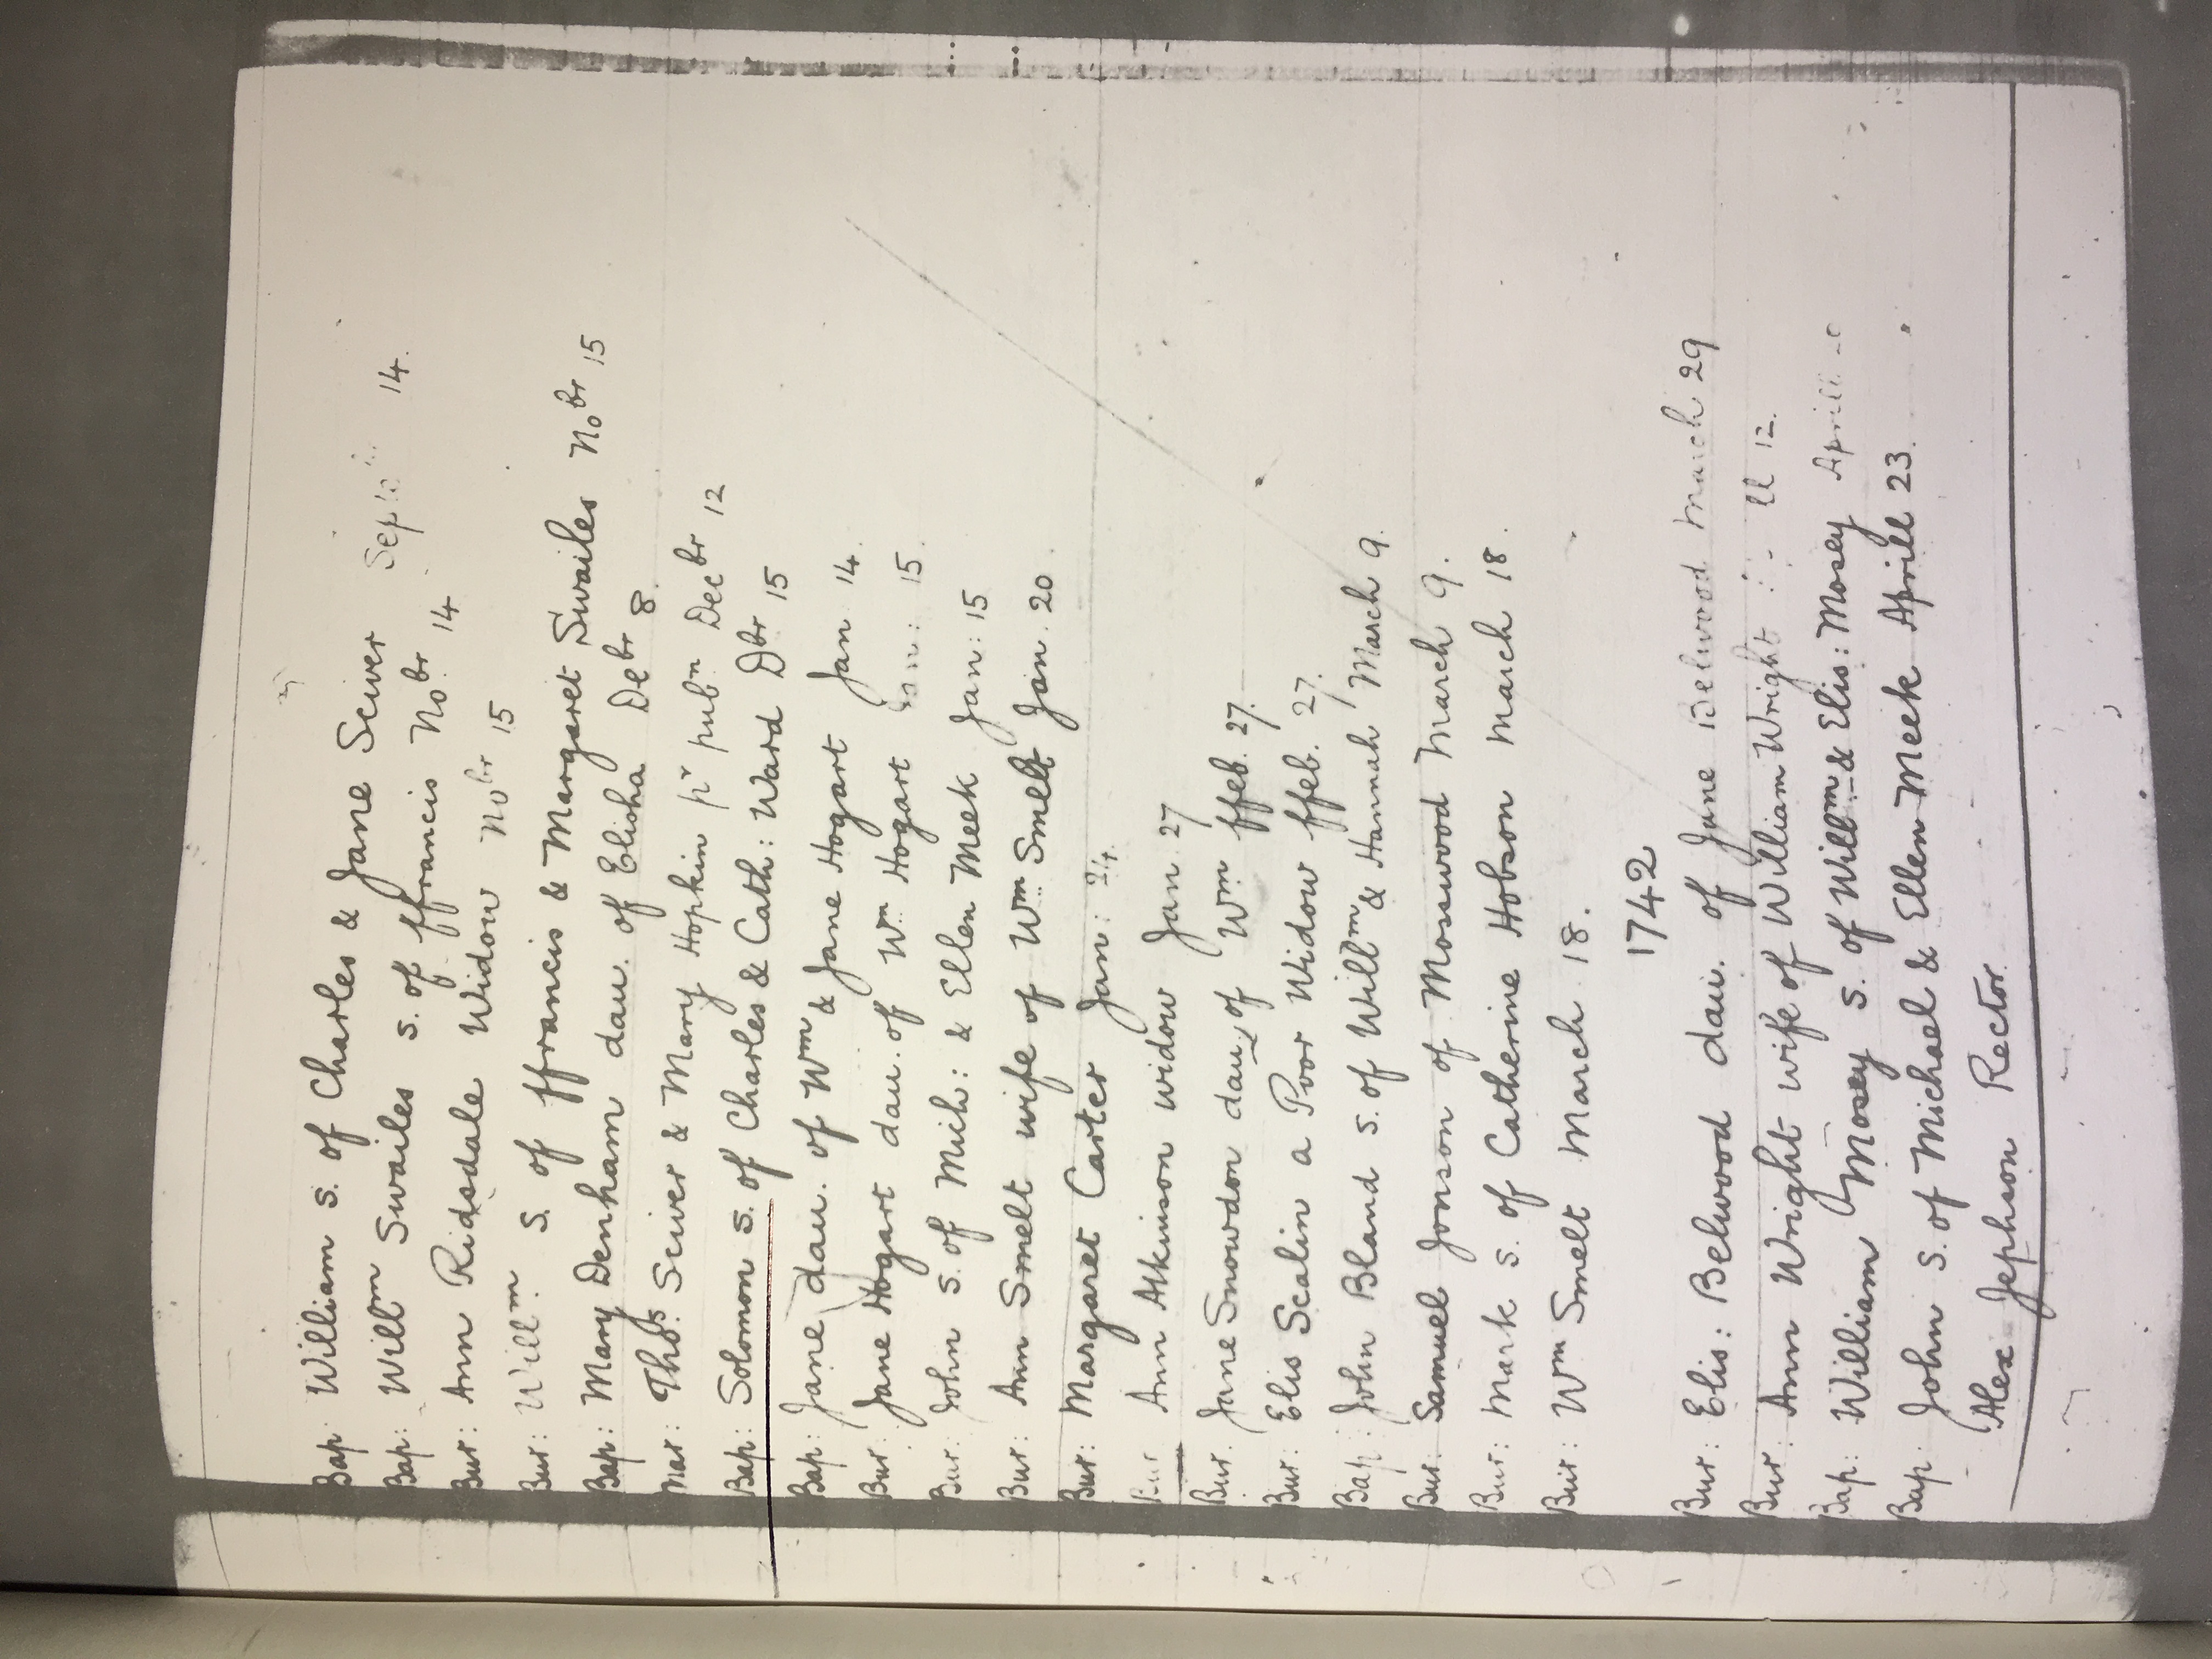 Bap: William s. of Charles & Jane Sciver Sept 14.
Bap: Willm Swailes s. of ffrancis Nobr 14
Bur: Ann Ridsdale Widow Nobr 15
Bur: Willm s. of ffrancis & Margaret Swailes Nobr 15
Bap: Mary Denham dau. of Elisha Debr 8.
Mar: Thos. Sciver & Mary Hopkin pr pubn Decbr 12
Bap: Solomon s. of Charles & Cath: Ward Dbr 15
Bap: Jane dau. of Wm & Jane Hogart Jan 14.
Bur: Jane Hogart dau. of Wm Hogart Jan: 15.
Bur: John s. of Mich: & Ellen Meek Jan: 15
Bur: Ann Smelt wife of Wm Smelt Jan. 20
Bur: Margaret Carter Jan: 24.
Bur Ann Atkinson widow Jan 27
Bur. Jane Snowdon dau of Wm ffeb. 27.
Bur: Elis Scalin a Poor Widow ffeb. 27.
Bap: John Bland s. of Willm & Hannah March 9.
Bur: Samuel Jonson of Moswood March 9.
Bur: Mark s. of Catherine Hobson March 18.
Bur: Wm Smelt March 18.
1742
Bur: Elis: Belwood dau. of Jane Belwood March 29
Bur: Ann Wright wife of William Wright 12.
Bap: William Mosey s. of Willm & Elis: Mosey Aprill
Bap: John s. of Michael & Ellen Meek Aprill 23.
Alex Jephson Rector.